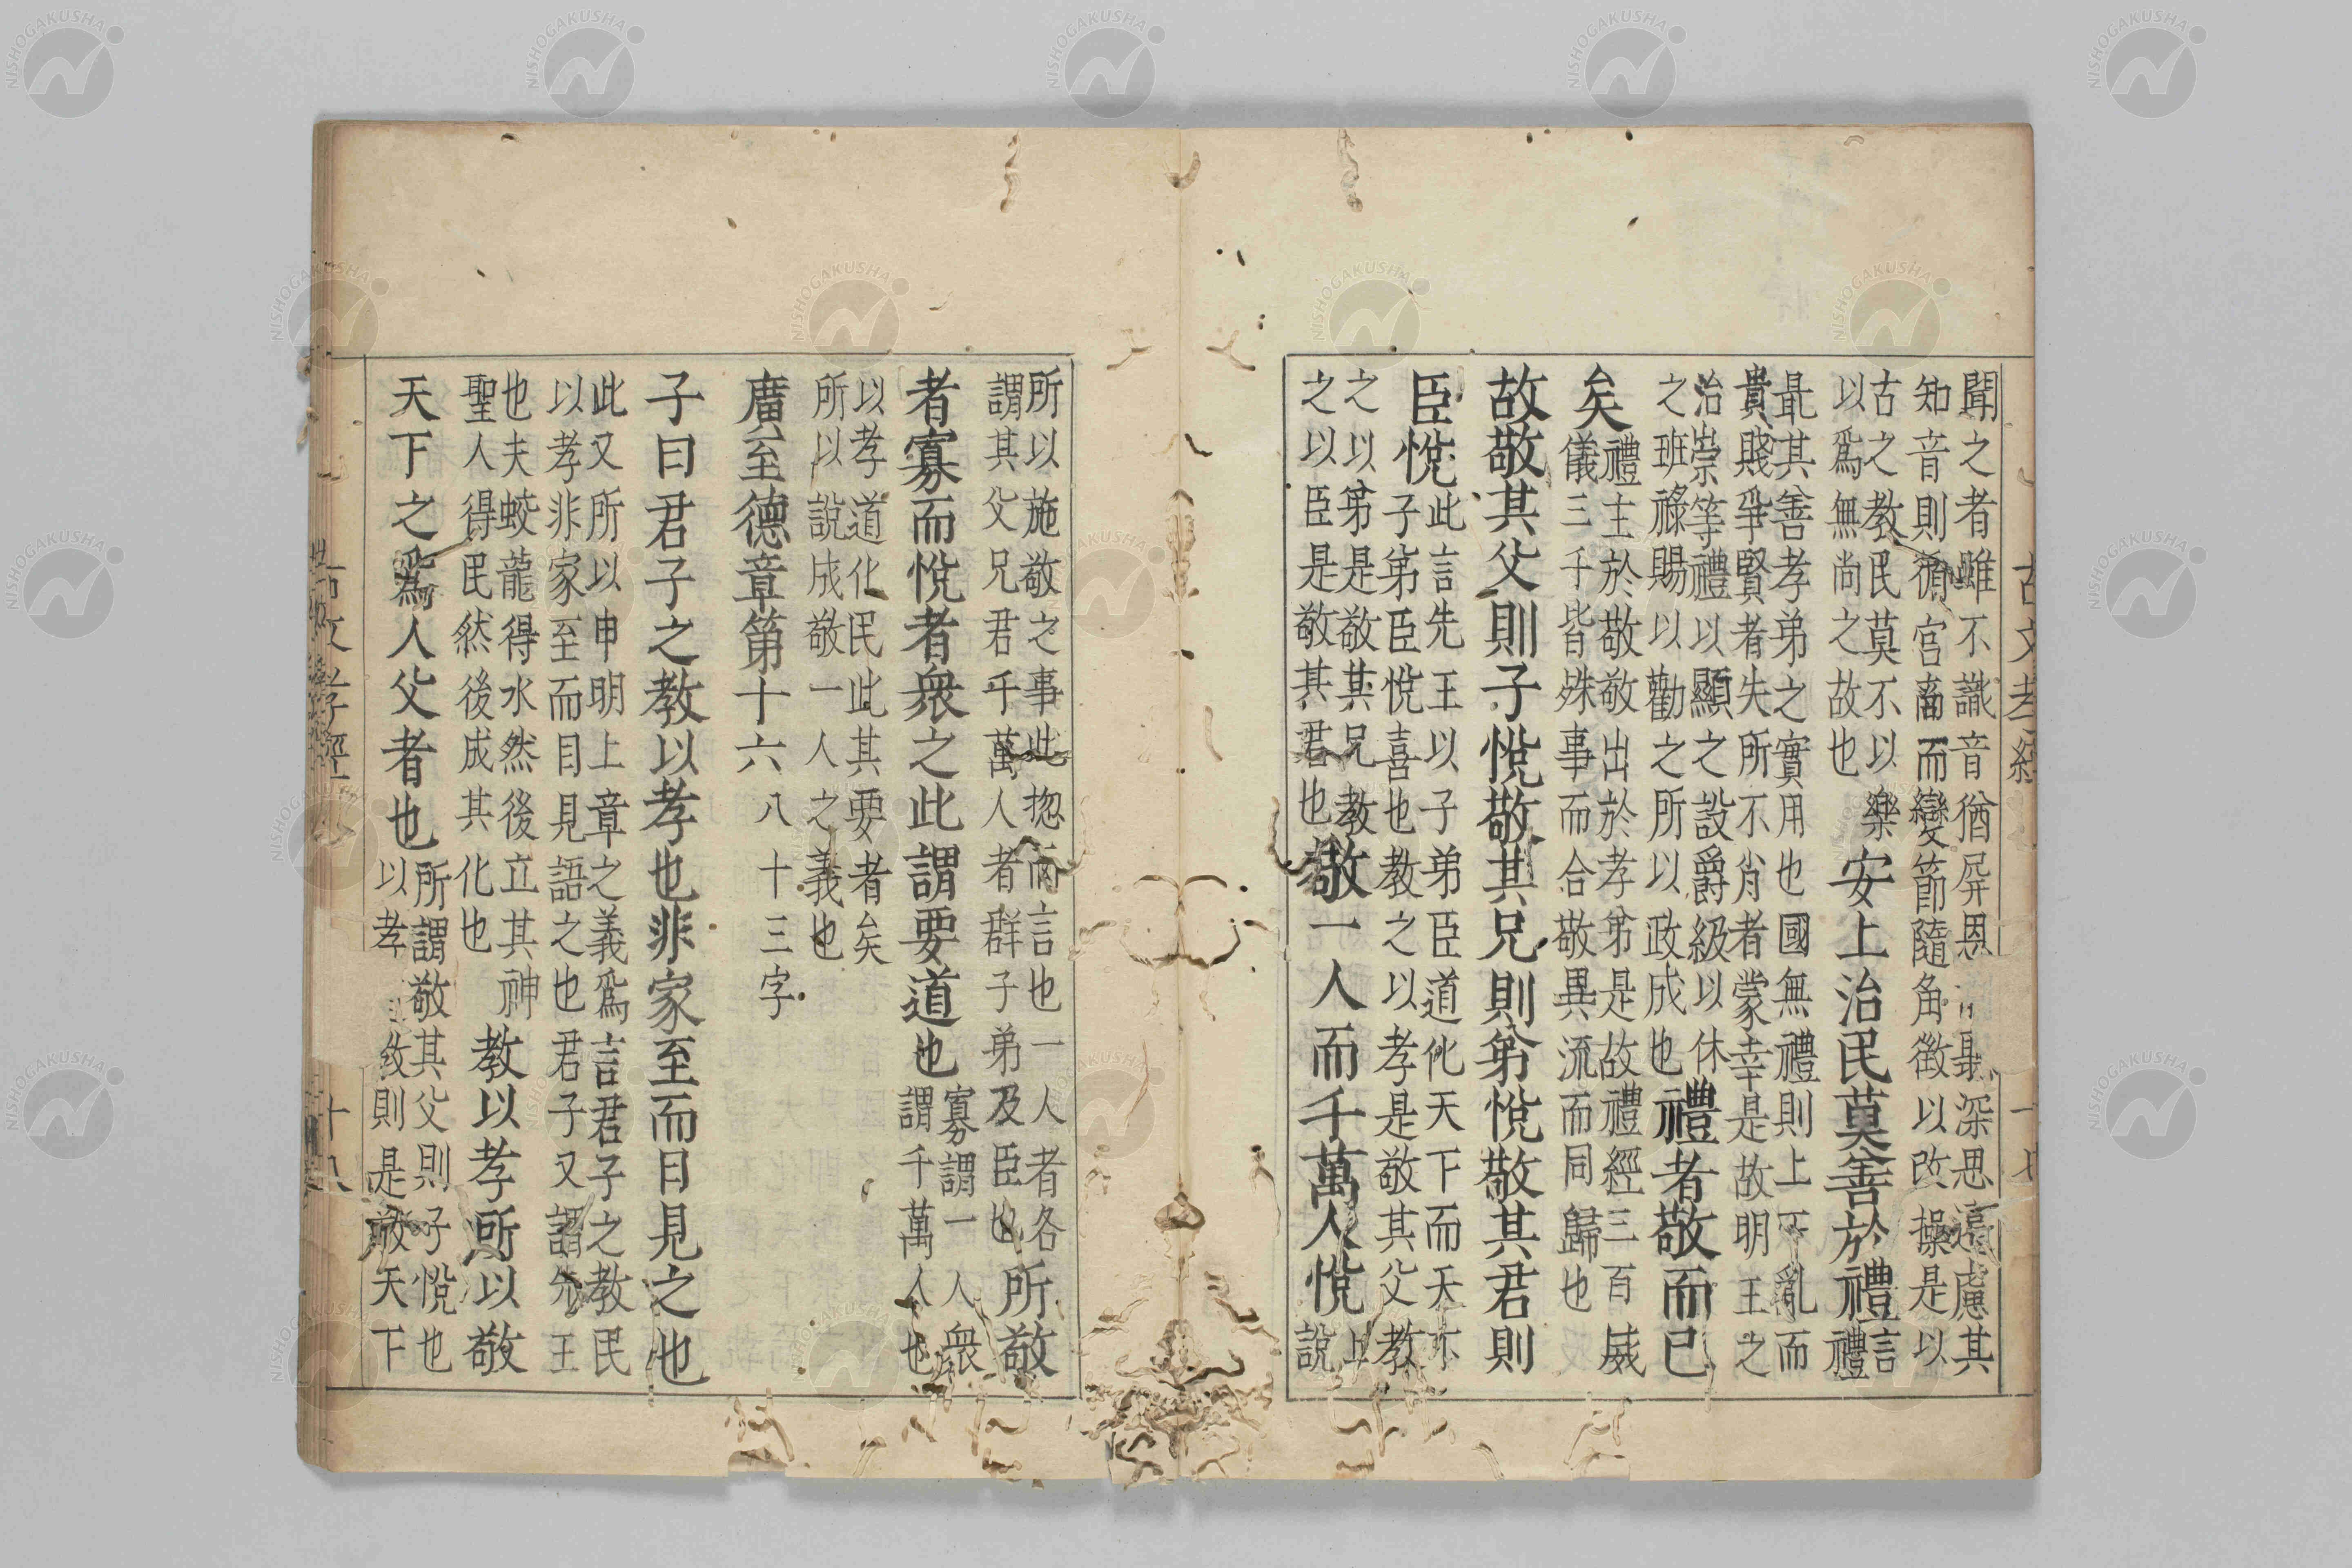 聞之者雖不識音猶屏息聽深思遠慮其
知音則循宮商而變節隨角徵以改操是以
古之教民莫不以樂
以爲無尚之故也
安上治民莫善於禮
言
禮
最其善孝弟之實用也國無禮則上下亂而
貴賤爭賢者失所不肖者蒙幸是故明王之
治崇等禮以顯之設爵級以休
之班祿賜以勸之所以政成也
禮者敬而已
矣
禮主於敬敬出於孝弟是故禮經三百威
儀三千皆殊事而合敬異流而同歸也
故敬其父則子悅敬其兄則弟悅敬其君則
臣悅
此言先王以子弟臣道化天下而天下
子弟臣悅喜也教之以孝是敬其父教
之以弟是敬其兄教
之以臣是敬其君也
敬一人而千萬人悅
上
說
所以施敬之事此揔而言也一人者各
謂其父兄君千萬人者群子弟及臣也
所敬
者寡而悅者衆之此謂要道也
寡謂一人衆
謂千萬人也
以孝道化民此其要者矣
所以說成敬一人之義也
廣至德章第十六
八十三字
子曰君子之教以孝也非家至而日見之也
此又所以申明上章之義爲言君子之教民
以孝非家至而目見語之也君子又謂先王
也夫蛟龍得水然後立其神
聖人得民然後成其化也
教以孝所以敬
天下之爲人父者也
所謂敬其父則子悅也
以孝敎則是敬天下
古文孝經
古文孝經
十八